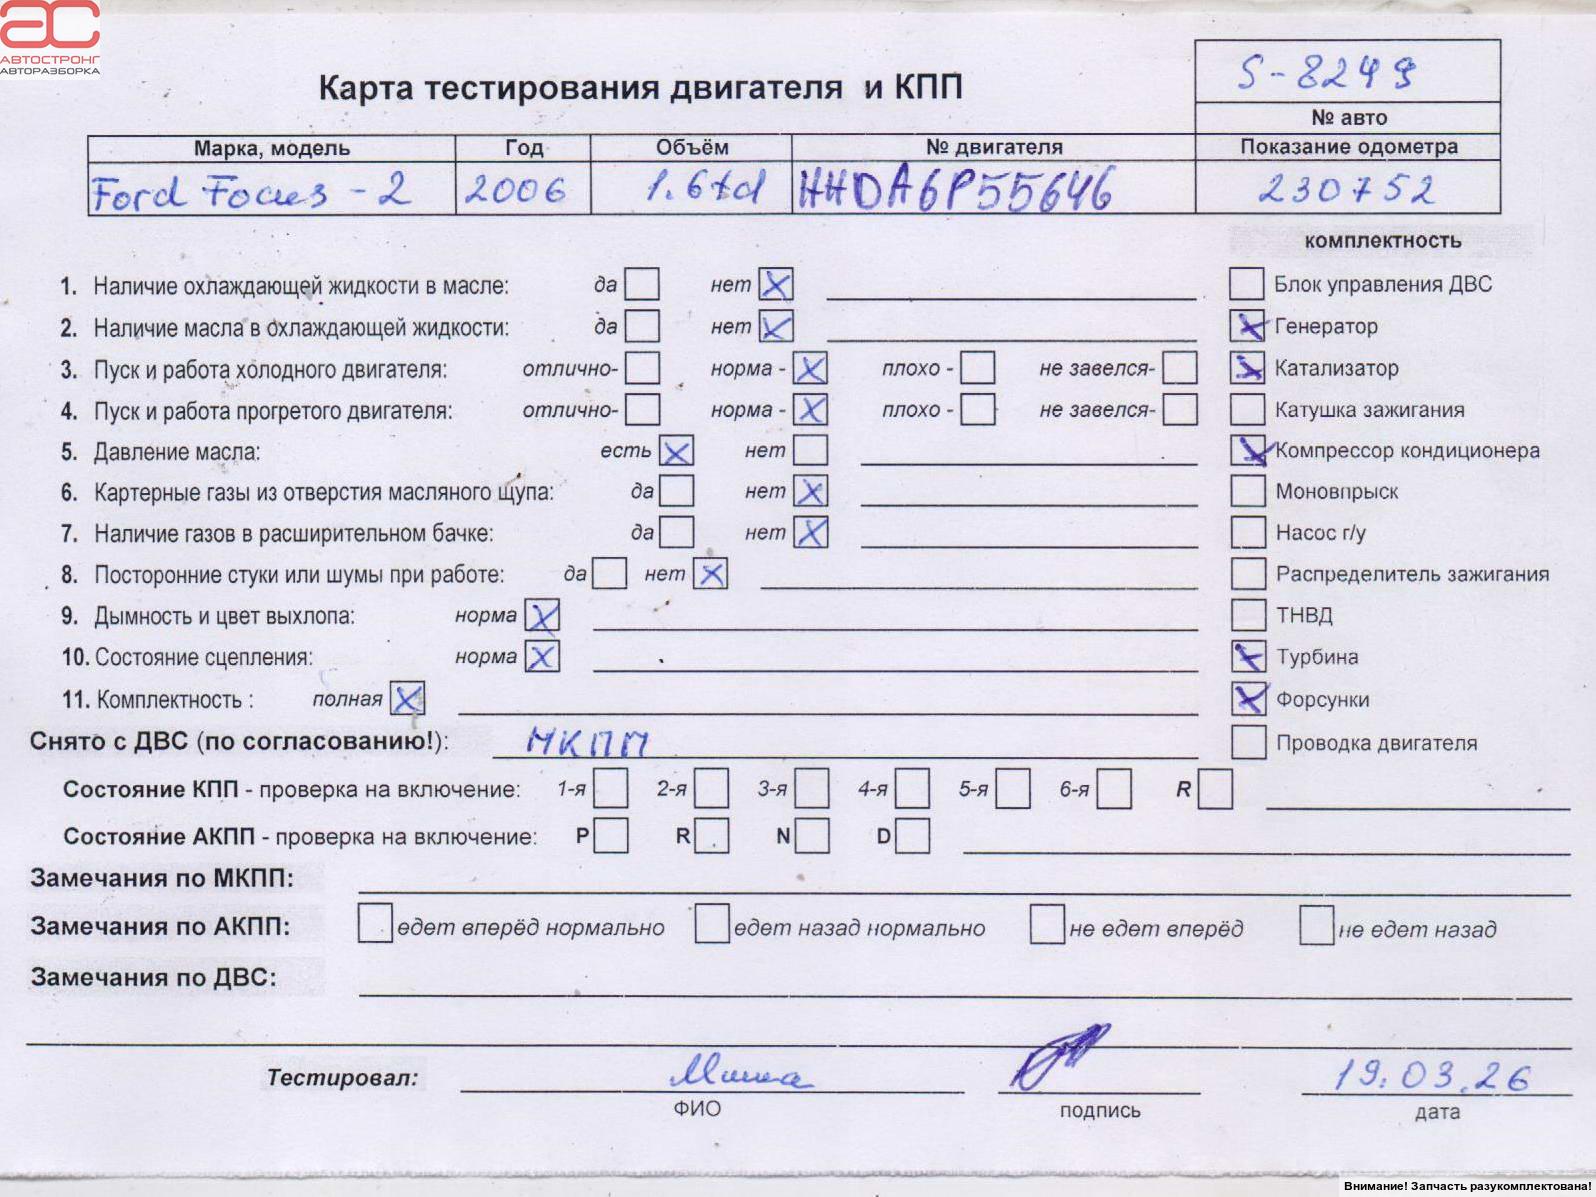 АС
АВТОСТРОНГ
АВТОРАЗБОРКА
Карта тестирования двигателя и КПП
S-8249
№ авто
Марка, модель Год Объём № двигателя Показание одометра
Ford Focus - 2 2006 1.6td HHDA6P55646 230752
комплектность
1. Наличие охлаждающей жидкости в масле: да нет Блок управления ДВС
2. Наличие масла в охлаждающей жидкости: да нет Генератор
3. Пуск и работа холодного двигателя: отлично- норма - плохо - не завелся- Катализатор
4. Пуск и работа прогретого двигателя: отлично- норма - плохо - не завелся- Катушка зажигания
5. Давление масла: есть нет Компрессор кондиционера
6. Картерные газы из отверстия масляного щупа: да нет Моновпрыск
7. Наличие газов в расширительном бачке: да нет Насос г/у
8. Посторонние стуки или шумы при работе: да нет Распределитель зажигания
9. Дымность и цвет выхлопа: норма ТНВД
10. Состояние сцепления: норма Турбина
11. Комплектность : полная Форсунки
Снято с ДВС (по согласованию!): МКПП Проводка двигателя
Состояние КПП - проверка на включение: 1-я 2-я 3-я 4-я 5-я 6-я R
Состояние АКПП - проверка на включение: P R N D
Замечания по МКПП:
Замечания по АКПП: едет вперёд нормально едет назад нормально не едет вперёд не едет назад
Замечания по ДВС:
Тестировал: Миша 19.03.26
ФИО подпись дата
Внимание! Запчасть разукомплектована!